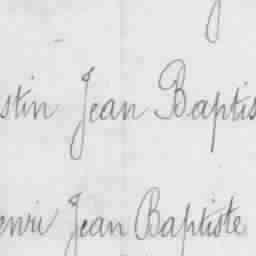 stin Jean Baptis
enri Jean Baptiste